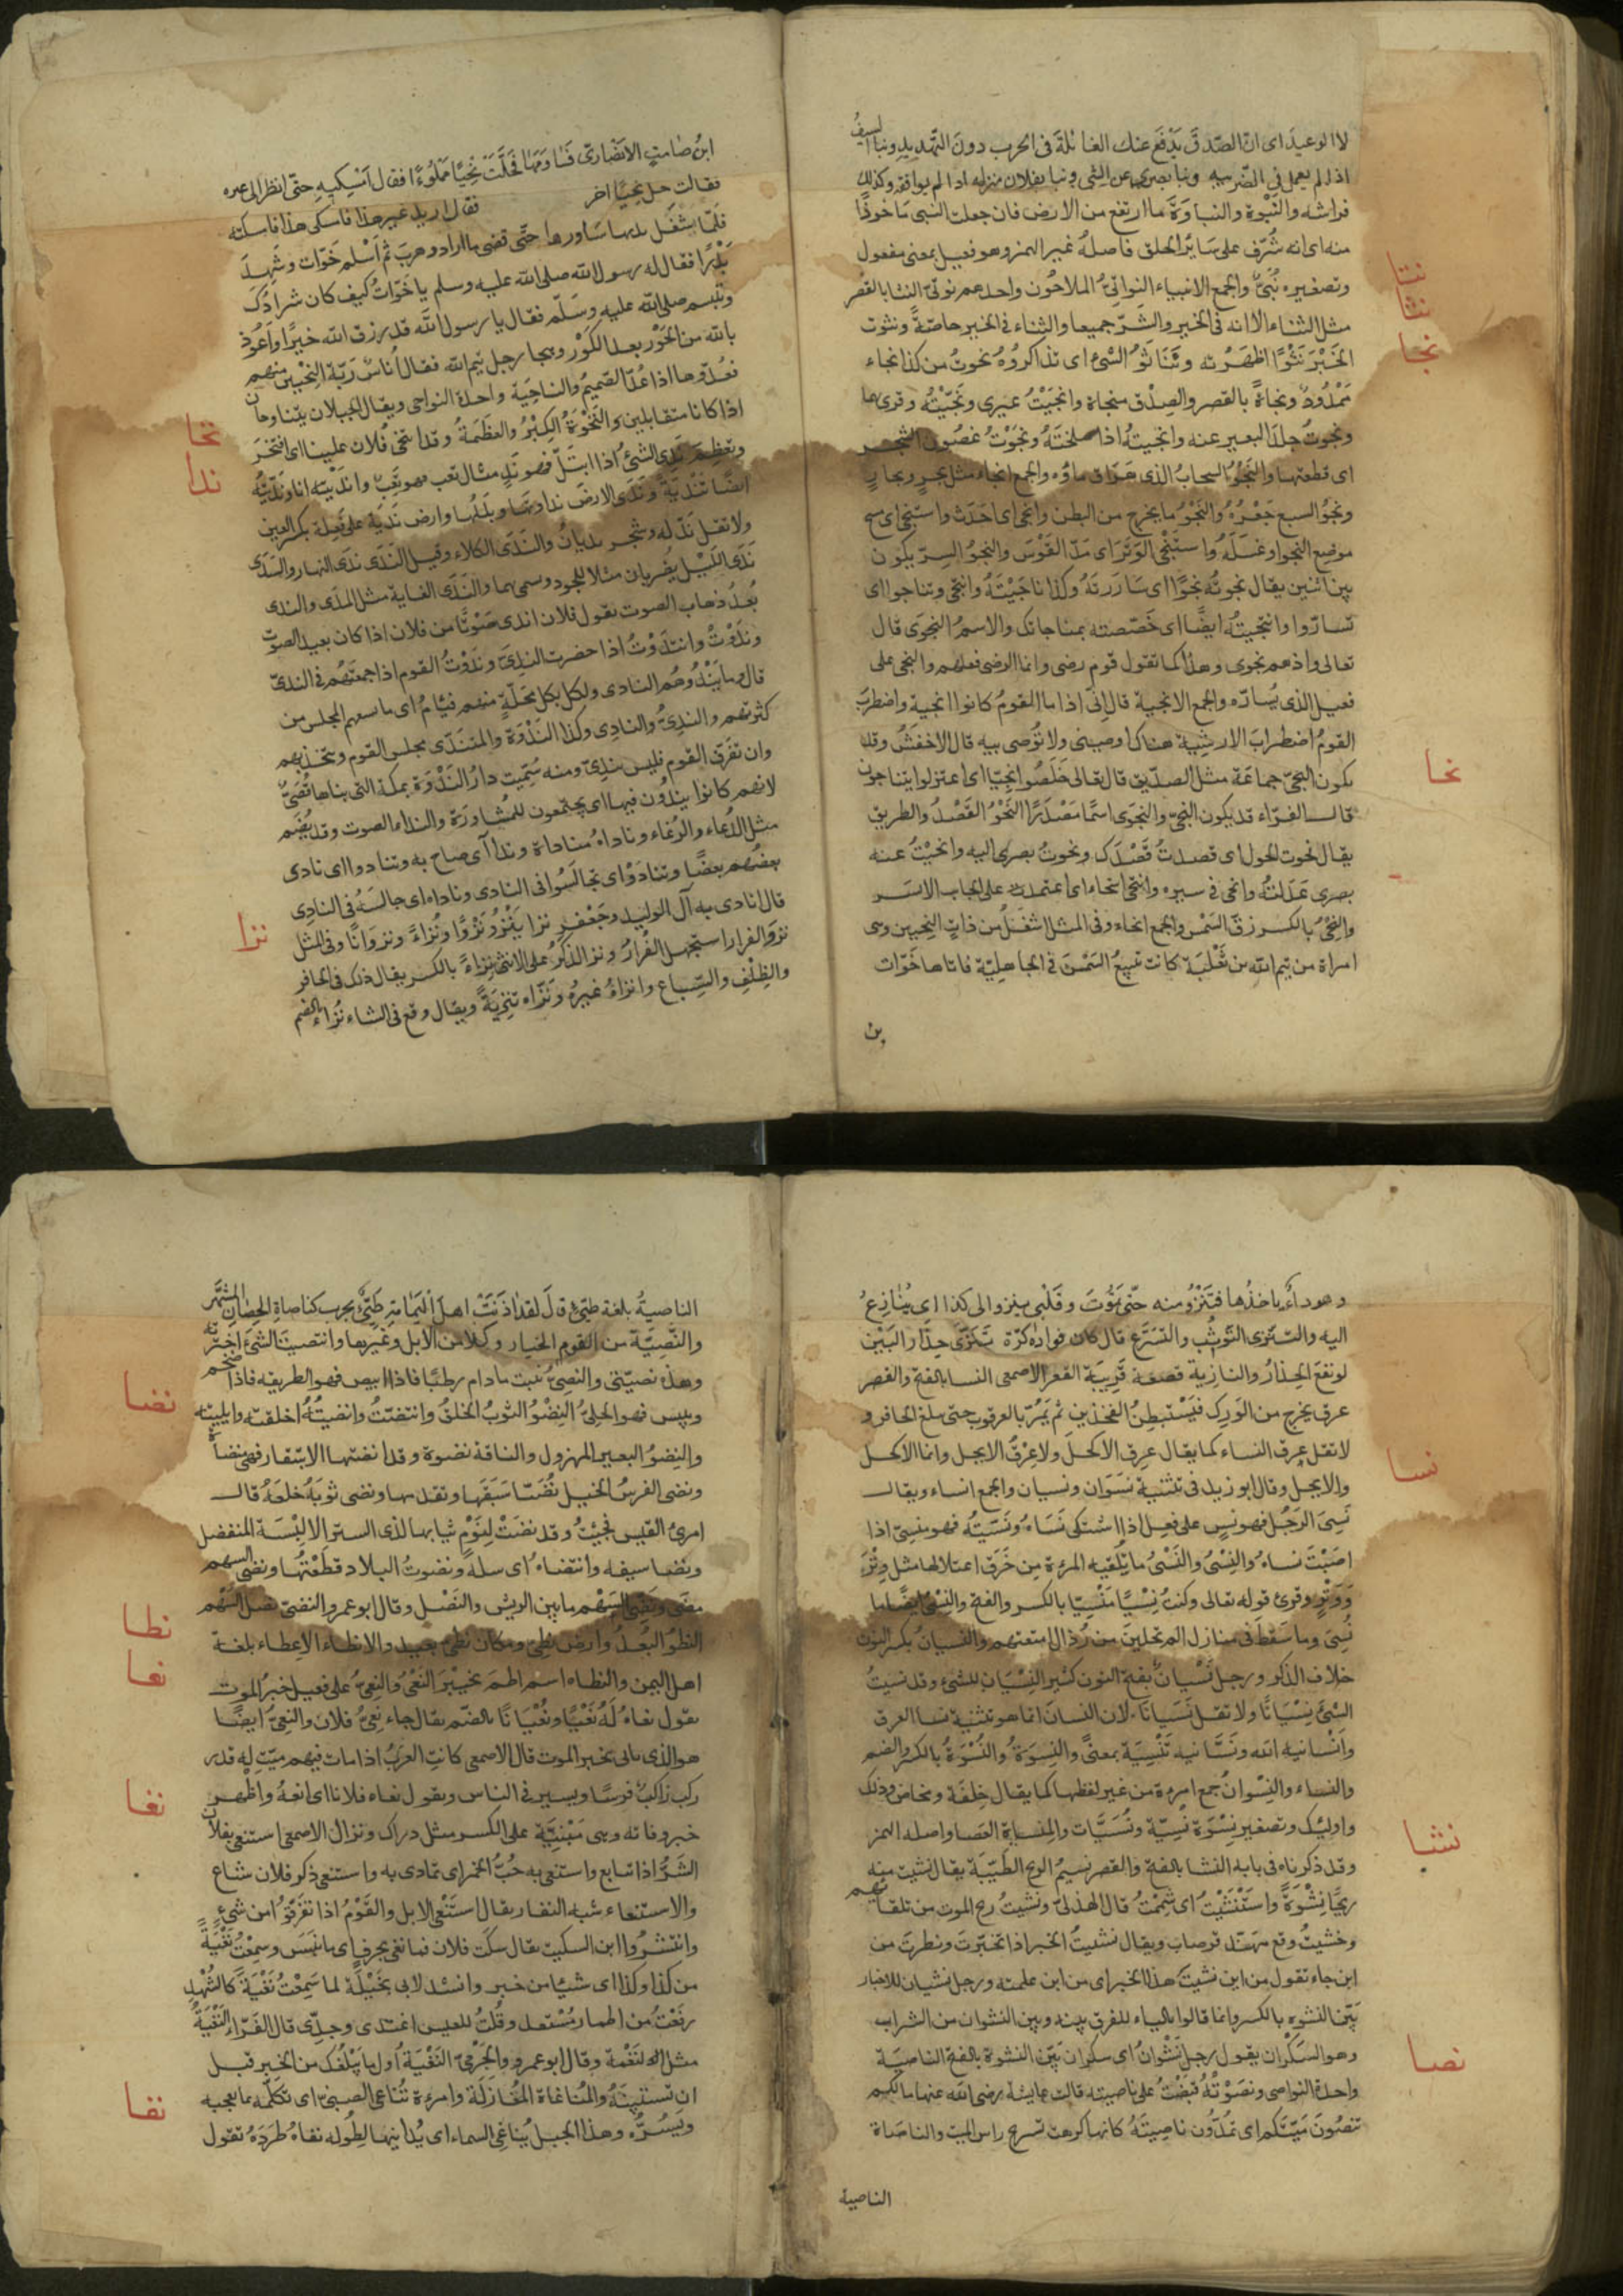 لا الوعيد اى ان الصدق يدفع عنك الغائلة فى الحرب دون التهديد ونبا السيف
اذا لم يعمل فى الضريبه ونبا بصرى عن الشى ونبا بفلان منزله اذا لم يوافقه وكذلك
فراشه والنبوة والنباوة ما ارتفع من الارض فان جعلت النبى ماخوذا
منه اى انه شرف على سائر الخلق فاصله غير الهمز وهو فعيل بمعنى مفعول
وتصغيره نبى والجمع الانبياء النواتى الملاحون واحدهم نوتى النثا بالقصر
نتا
نثا
مثل الثناء الا انه فى الخير والشر جميعا والثناء فى الخير خاصة ونثوت
الخبر نثوا اظهرته وتناثوا الشئ اى تذاكروه نجوت من كذا نجاء
نجا
ممدود ونجاة بالقصر والصدق منجاة وانجيت غيرى ونجيته وقرئ بهما
ونجوت جلد البعير عنه وانجيته اذا سلخته ونجوت غصون الشجر
اى قطعتها والنجو السحاب الذى هراق ماؤه والجمع نجاء مثل بحر وبحار
ونجو السبع جعره والنجو ما يخرج من البطن وانجى اى احدث واستنجى اى مسح
موضع النجو او غسله واستنجى الوتر اى مد القوس والنجو السر يكون
بين اثنين يقال نجوته نجوا اى ساررته وكذا ناجيته وانتجى وتناجوا اى
تساروا وانتجيته ايضا اى خصصته بمناجاتك والاسم النجوى قال
تعالى واذ هم نجوى وهذا كما تقول قوم رضى وانما الرضى فعلهم والنجى على
فعيل الذى يساره والجمع الانجية قال انى اذا ما القوم كانوا انجية واضطرب
القوم اضطراب الارشية هناك اوصينى ولا توصى بيه قال الاخفش وقد
يكون النجى جماعة مثل الصديق قال تعالى خلصوا نجيا اى اعتزلوا يتناجون
نحا
قال الفراء قد يكون النجى والنجوى اسما مصدرا النحو القصد والطريق
يقال نحوت نحوك اى قصدت قصدك ونحوت بصرى اليه وانحيت عنه
بصرى عدلته وانحى فى سيره وانتحى انتحاء اى اعتمد على الجانب الايسر
والنحى بالكسر زق السمن والجمع انحاء وفى المثل اشغل من ذات النحيين وهى
امراة من تيم الله بن ثعلبة كانت تبيع السمن فى الجاهلية فاتاها خوات
بن
ابن صامت الانصارى فساومها فحلت نحيا مملوءا فقال امسكيه حتى انظر الى غيره
فقالت حل نحيا اخر فقال اريد غير هذا فامسكى هذا فامسكته
فلما شغل يديها ساورها حتى قضى ما اراد وهرب ثم اسلم خوات وشهد
بدرا فقال له رسول الله صلى الله عليه وسلم يا خوات كيف كان شرادك
وتبسم صلى الله عليه وسلم فقال يا رسول الله قد رزق الله خيرا واعوذ
بالله من الحور بعد الكور وهجا رجل تيم الله فقال اناس ربة النحيين منهم
فعدوها اذا عد الصميم والناحية واحدة النواحى ويقال الجبلان يتناوحان
نخا
اذا كانا متقابلين والنخوة الكبر والعظمة وقد انتخى فلان علينا اى افتخر
ندا
وتعظم ندى الشئ اذا ابتل فهو ند مثال تعب فهو تعب وانديته انا ونديته
ايضا تندية وندى الارض نداوتها وبللها وارض ندية على فعلة بكسر العين
ولا تقل ندية وشجر نديان والندى الكلاء وقيل الندى ندى النهار والسدى
ندى الليل يضربان مثلا للجود وسمى بهما والندى الغاية مثل المدى والندى
بعد ذهاب الصوت تقول فلان اندى صوتا من فلان اذا كان بعيد الصوت
وندوت وانتدوت اذا حضرت الندى وندوت القوم اذا جمعتهم فى الندى
قال وما يندوهم النادى ولكن بكل محلة منهم فئام اى ما يسعهم المجلس من
كثرتهم والندى والنادى وكذا الندوة والمنتدى مجلس القوم ومتحدثهم
وان تفرق القوم فليس بندى ومنه سميت دار الندوة بمكة التى بناها قصى
لانهم كانوا يندون فيها اى يجتمعون للمشاورة والنداء الصوت وقد يضم
مثل الدعاء والرغاء وناداه مناداة ونداء اى صاح به وتنادوا اى نادى
بعضهم بعضا وتنادوا اى تجالسوا فى النادى وناداه اى جالسه فى النادى
نزا
قال انادى به آل الوليد وجعفر نزا ينزو نزوا ونزاء ونزوانا وفى المثل
نزو الفرار استجهل الفرار ونز الذكر على الانثى نزاء بالكسر يقال ذلك فى الحافر
والظلف والسباع وانزاه غيره ونزاه تنزية ويقال وقع فى الشاء نزاء بالضم
وهو داء ياخذها فتنزو منه حتى تموت وقلبى ينزو الى كذا اى ينازع
اليه والتنزى التوثب والتسرع قال كان فواده كرة تنزى حذار البين
لو نفع الحذار والنازية قصعة قريبة القعر الاصمعى النسا بالفتح والقصر
عرق يخرج من الورك فيستبطن الفخذين ثم يمر بالعرقوب حتى يبلغ الحافر و
نسا
لا تقل عرق النساء كما يقال عرق الاكحل ولا عرق الابجل وانما الاكحل
والابجل وقال ابو زيد فى تثنية نسوان ونسيان والجمع انساء ويقال
نسى الرجل فهو نس على فعل اذا اشتكى نساه ونسيته فهو منسى اذا
اصبت نساه والنسى والنسى ما تلقيه المرءة من خرق اعتلالها مثل وتر
ووتر وقرئ قوله تعالى وكنت نسيا منسيا بالكسر والفتح والنسى ايضا ما
نسى وما سقط فى منازل المرتحلين من رذال امتعتهم والنسيان بكسر النون
خلاف الذكر ورجل نسيان بفتح النون كثير النسيان للشئ وقد نسيت
الشئ نسيانا ولا تقل نسيانا لان النسيان انما هو تثنية نسا العرق
وانسانيه الله ونسانيه تنسية بمعنى والنسوة والنسوة بالكسر والضم
والنساء والنسوان جمع امرءة من غير لفظها كما يقال خلفة ومخاض وذلك
واولئك وتصغير نسوة نسية ونسيات والمنساة العصا واصله الهمز
نشا
وقد ذكرناه فى بابه النشا بالفتح والقصر نسيم الريح الطيبة يقال نشيت منه
ريحا نشوة واستنشيت اى شممت قال الهذلى ونشيت ريح الموت من تلقائهم
وخشيت وقع مهند قرضاب ويقال نشيت الخبر اذا تخبرت ونظرت من
اين جاء تقول من اين نشيت هذا الخبر اى من اين علمته ورجل نشيان للاخبار
بين النشوه بالكسر وانما قالوا بالياء للفرق بينه وبين النشوان من الشراب
نصا
وهو السكران يقول رجل نشوان اى سكران بين النشوة بالفتح الناصية
واحدة النواصى ونصوته قبضت على ناصيته قالت عايشة رضى الله عنها ما لكم
تنصون ميتكم اى تمدون ناصيته كانها كرهت تسريح راس الميت والناصاة
الناصية
الناصية بلغة طيئ قال لقد اذنت اهل اليمامة طيئ بحرب كناصاة الحصان المشهر
والنصية من القوم الخيار وكذا من الابل وغيرها وانتصيت الشئ اخترته
وهذه نصيتى والنصى نبت مادام رطبا فاذا ابيض فهو الطريقة فاذا ضخم
نضا
ويبس فهو الحلى النضو الثوب الخلق وانتضيت وانضيته اخلقته وابليته
والنضو البعير المهزول والناقة نضوة وقد انضتها الاسفار فهى منضاة
ونضى الفرس الخيل نضيا سبقها وتقدمها ونضى ثوبه خلعه قال
امرئ القيس فجئت وقد نضت لنوم ثيابها لدى الستر الا لبسة المتفضل
ونضا سيفه وانتضاه اى سله ونضوت البلاد قطعتها ونضى السهم
مضى ونضى السهم ما بين الريش والنصل وقال ابو عمر والنضى نصل السهم
نطا
النطو البعد وارض نطية ومكان نطى بعيد والانطاء الاعطاء بلغة
نعا
اهل اليمن والنطاه اسم اطم بخيبر النعى والنعى على فعيل خبر الموت
يقول نعاه له نعيا ونعيانا بالضم يقال جاء نعى فلان والنعى ايضا
هو الذى ياتى بخبر الموت قال الاصمعى كانت العرب اذا مات فيهم ميت له قدر
نغا
ركب راكب فرسا ويسير فى الناس ويقول نعاء فلانا اى انعه واظهر
خبر وفاته وهى مبنية على الكسر مثل دراك ونزال الاصمعى استنعى بفلان
الشر اذا تتابع واستنعى به حب الخمر اى تمادى به واستنعى ذكر فلان شاع
والاستنعاء شبه النفار يقال استنعى الابل والقوم اذا تفرقوا من شئ
وانتشروا ابن السكيت يقال سكت فلان فما نغى بحرف اى ما نبس وسمعت نغية
من كذا وكذا اى شيئا من خبر وانشد لابى نخيلة لما سمعت نغية كالشهد
رفعت من اطمار مستعد وقلت للعيس اغتدى وجدى قال الفراء النغية
مثل النغمة وقال ابو عمر والجرمى النغية اول ما يبلغك من الخبر قبل
نفا
ان تستبينه والمناغاة المغازلة وامرءة تناغى الصبى اى تكلمه بما يعجبه
ويسره وهذا الجبل يناغى السماء اى يدانيها لطوله نفاه طرده تقول